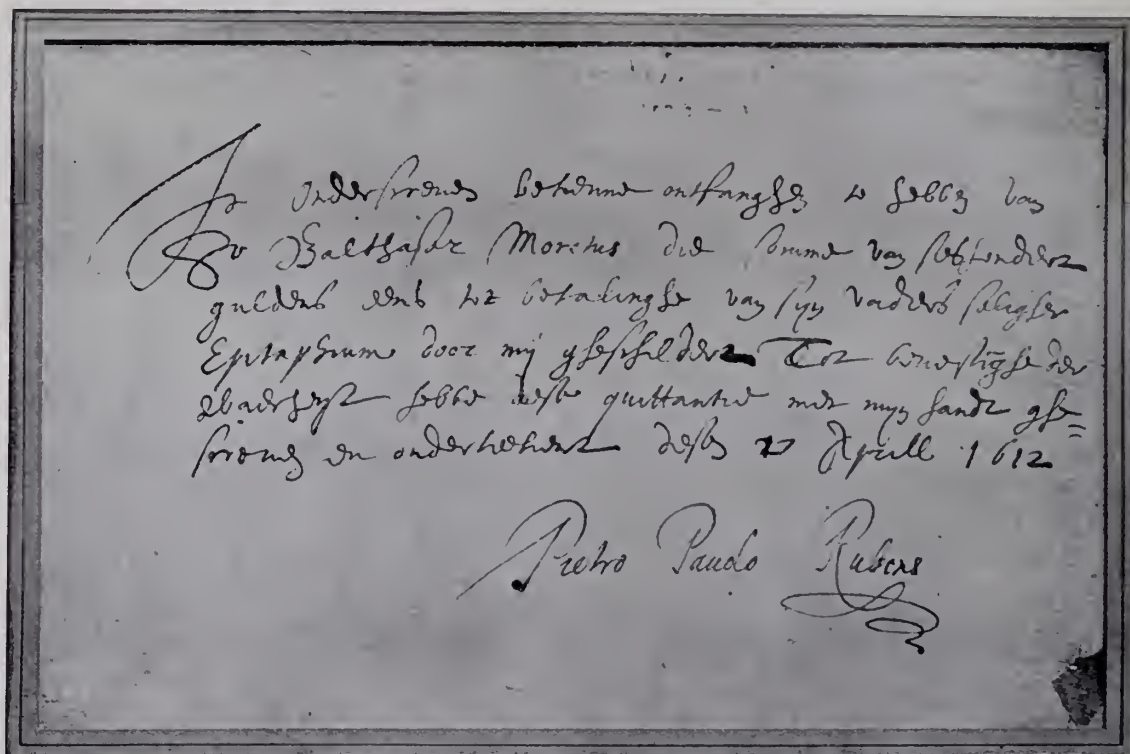 Ic Ondersreven bekenne ontfanghen te hebben van
Sr Balthasar Moretus die somme van seshondert
guldens eens tot betalinghe van syn vaders saligher
Epitaphium door mij gheschildert Tot bevestighe der
Waerheyt hebbe dese quittantie met mijn handt ghe=
sreven en onderteekent desen 27 April 1612
Pietro Pauolo Rubens